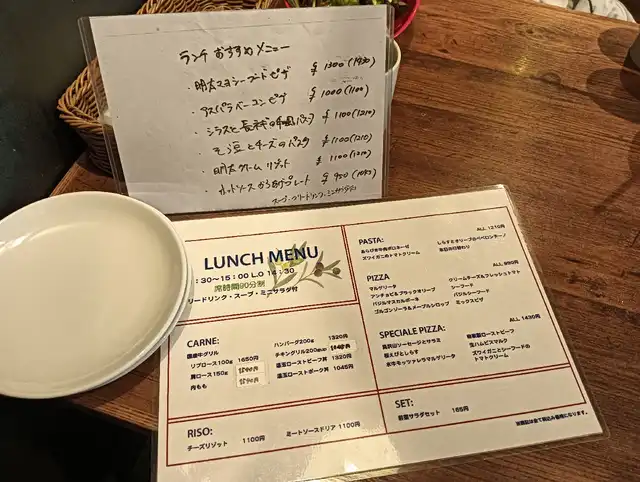 ランチ おすすめメニュー
・明太マヨシーフードピザ ¥1300(1430)
・アスパラベーコンピザ ¥1000(1100)
・シラスと長ネギの和風パスタ ¥1100(1210)
・そら豆とチーズのパスタ ¥1100(1210)
・明太クリームリゾット ¥1100(1210)
・ホットソースからあげプレート ¥950(1045)
スープ・フリードリンク・ミニサラダ付
LUNCH MENU
:30~15:00 L.O 14:30
席時間90分制
リードリンク・スープ・ミニサラダ付
CARNE:
国産牛グリル
リブロース100g 1650円
肩ロース150g
内もも
ハンバーグ200g 1320円
チキングリル200gup
温玉ローストビーフ丼 1320円
温玉ローストポーク丼 1045円
RISO:
チーズリゾット 1100円
ミートソースドリア 1100円
PASTA: ALL 1210円
ズワイガニのトマトクリーム
しらすとオリーブのペペロンチーノ
本日の日替わり
PIZZA ALL 990円
マルゲリータ
アンチョビ&ブラックオリーブ
バジルマスカルポーネ
ゴルゴンゾーラ&メープルシロップ
クリームチーズ&フレッシュトマト
シーフード
バジルシーフード
ミックスピザ
SPECIALE PIZZA: ALL 1430円
黒沢山ソーセージとサラミ
桜えびとしらす
水牛モッツァレラマルゲリータ
特製鶏ローストビーフ
生ハムビスマルク
ズワイガニとシーフードの
トマトクリーム
SET:
前菜サラダセット 165円
※表記は全て税込み価格になります。